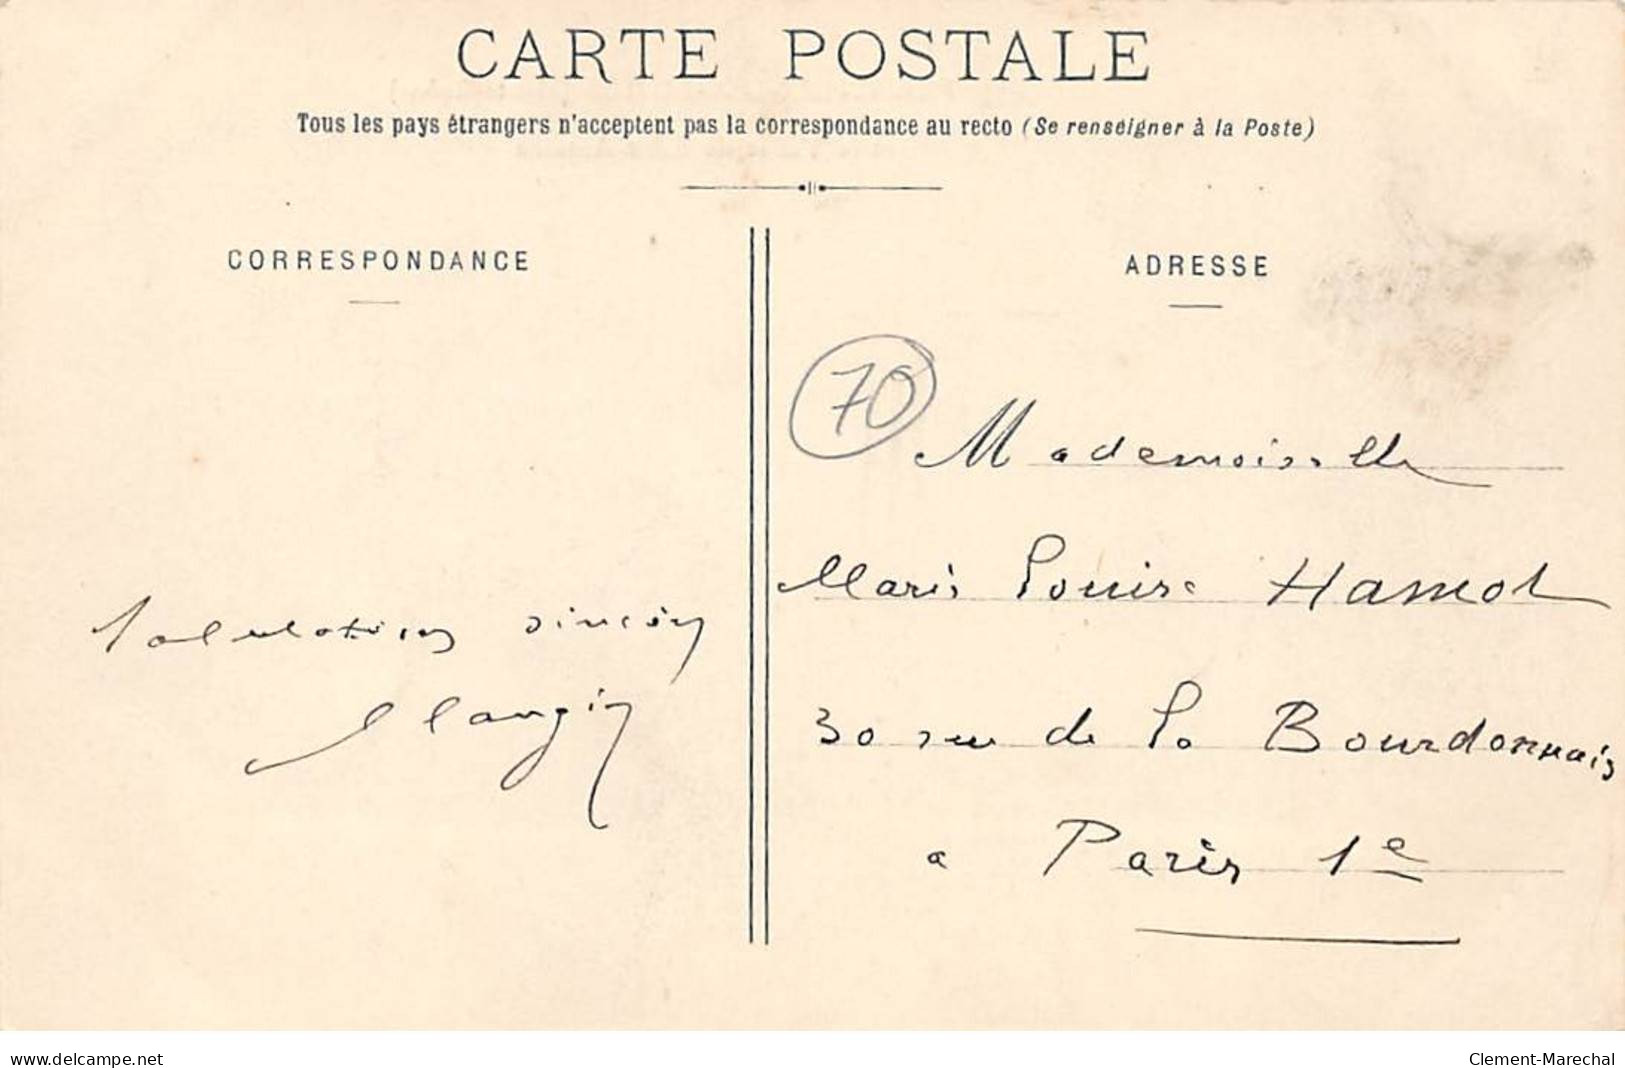 CARTE POSTALE
Tous les pays étrangers n'acceptent pas la correspondance au recto (Se renseigner à la Poste)
CORRESPONDANCE
ADRESSE
70
Mademoiselle
Marie Louise Hamot
30 rue de la Bourdonnais
a Paris 1e
Salutations sincères
Mangin
www.delcampe.net
Clement-Marechal